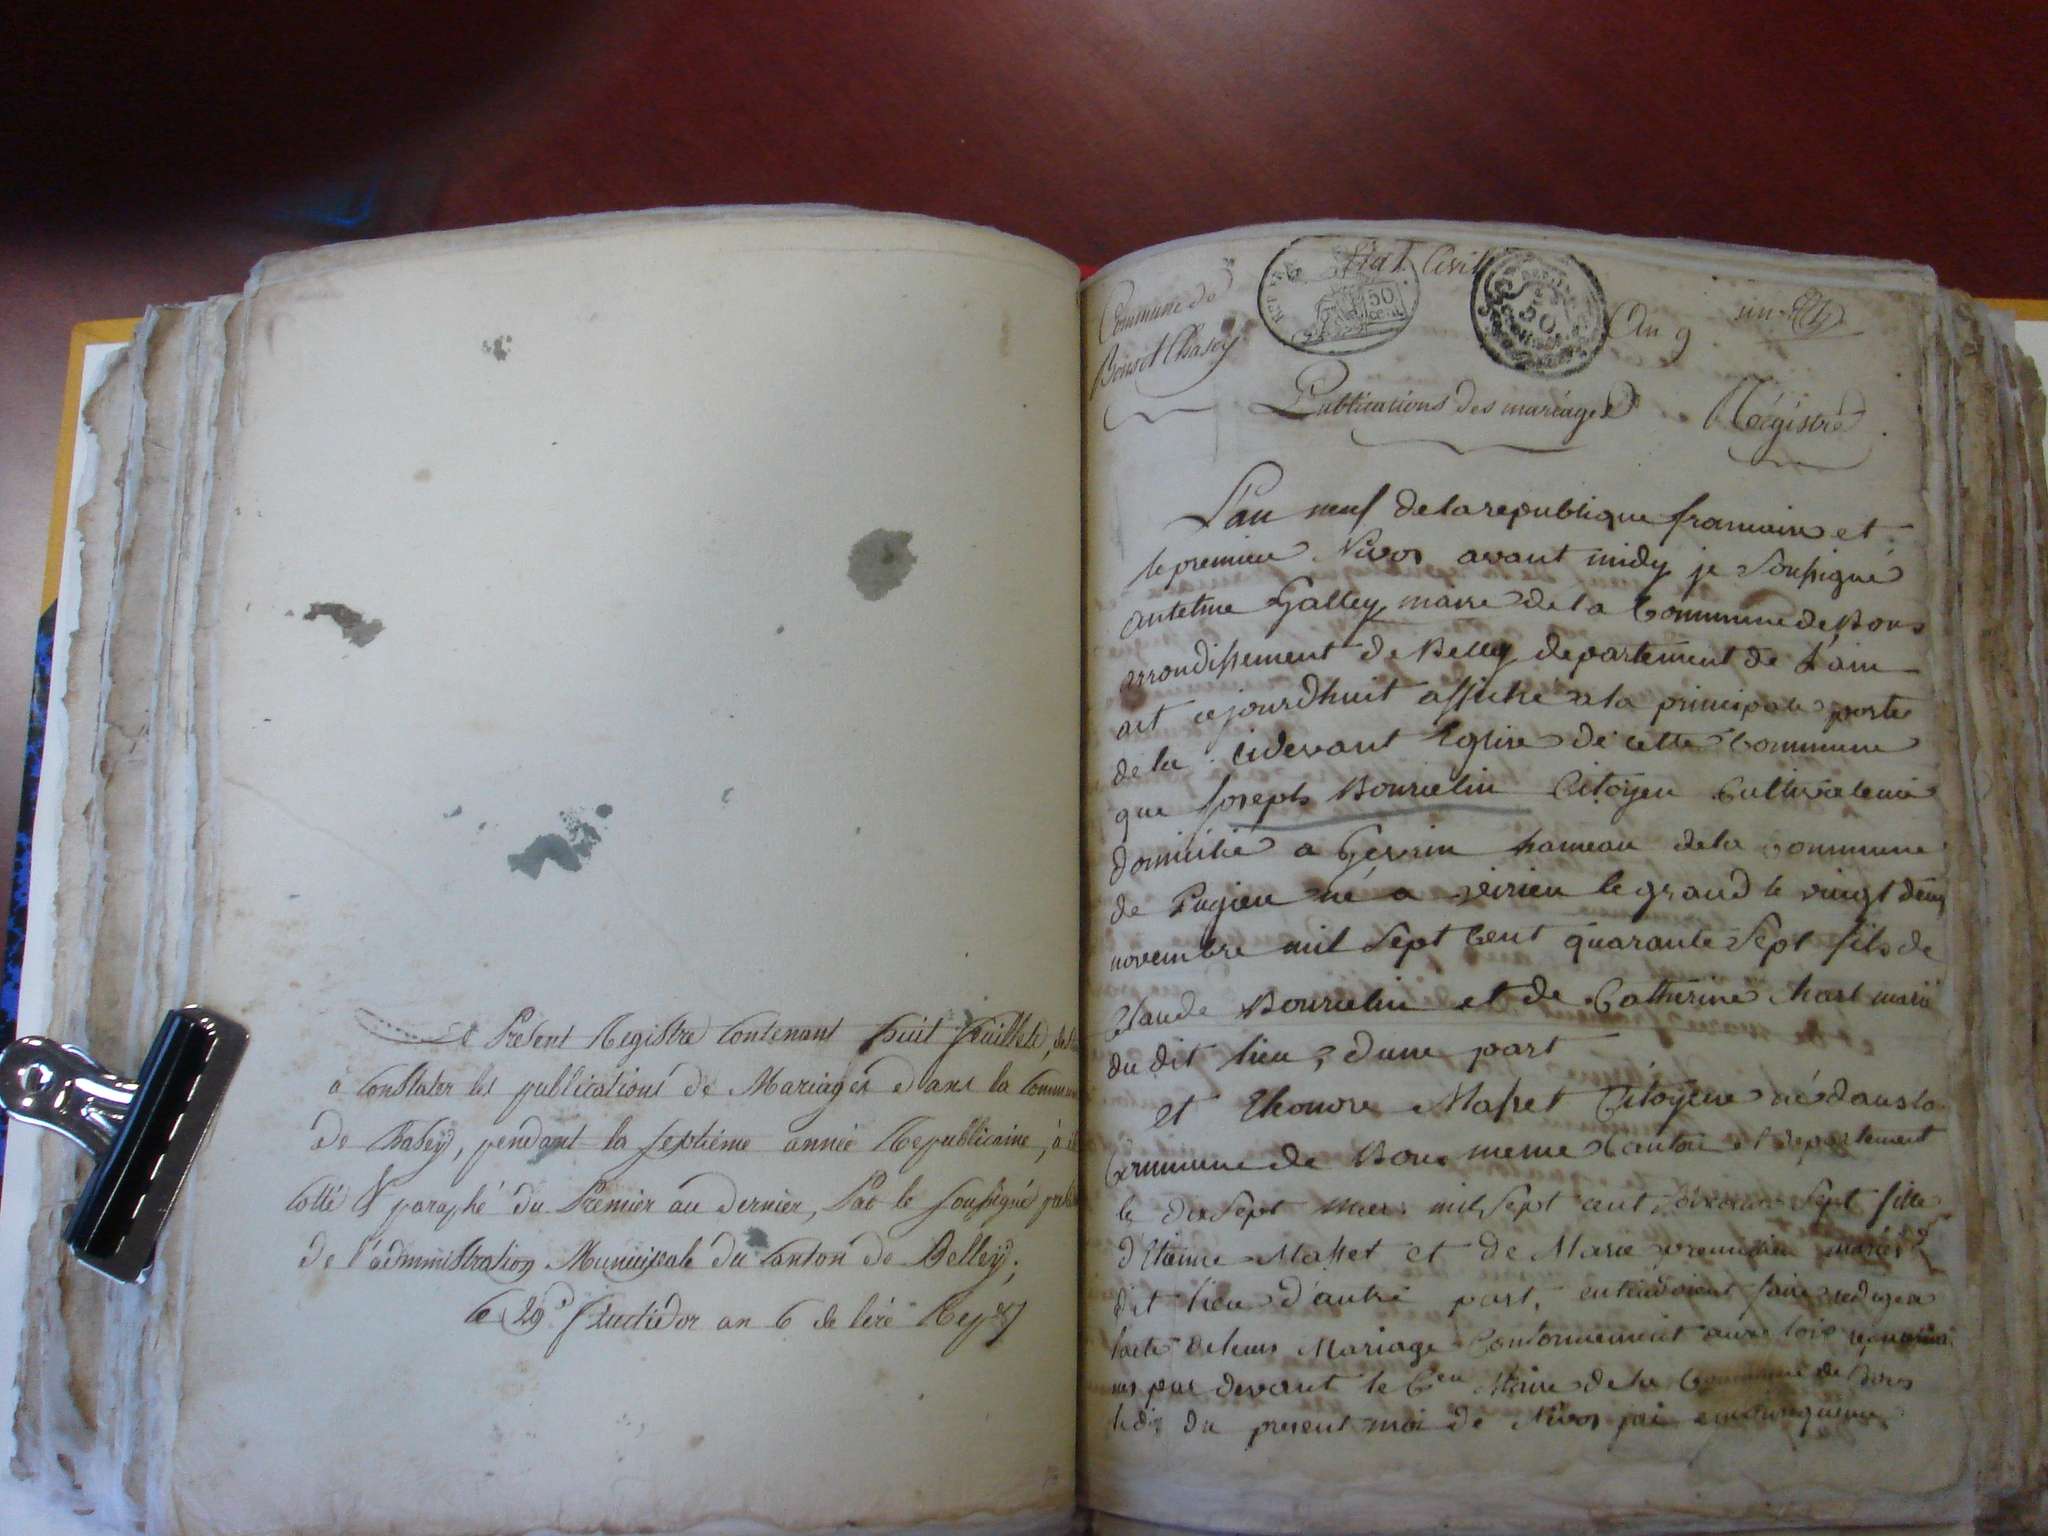 Present Registre contenant huit feuillets,
à constater les publications de Mariages dans la Commune
de Chasey, pendant la septième année Republicaine, à
cotté & paraphé du Premier au dernier, Par le soussigné
de l'administration Municipale du Canton de Belley,
le 29 fructidor an 6 de l'ère Rep
Etat Civil
Commune de
Bons et Chasey
50
50
An 9
un
Publications des mariages
Régistre
L'an neuf de la republique francaise et
le premier Nivos avant midy je soussigné
antelme Galley maire de la Commune de Bons
arrondissement de Belley departement de L'ain
ait cejourdhuit affiché a la principale porte
de la cidevant Eglise de cette Commune
que Joseph Bourcelin Citoyen Cultivateur
domicilié a Gevrin hameau de la Commune
de Pugieu né a virieu le grand le vingt deux
novembre mil Sept Cent quarante Sept fils de
Claude Bourcelin et de Catherine mariè
du dit lieu, dune part
et Eleonore Masset Citoyene né dans la
Commune de Bons meme Canton et departement
le dix Sept mars mil Sept cent Sept fille
d'Etienne Masset et de Marie mariés
dit lieu d'autre part, entendoient faire rediger
lacte de leurs Mariage Conformement aux lois
par devant le Cen Maire de la Commune de Bons
le dix du present moi de Nivos jai